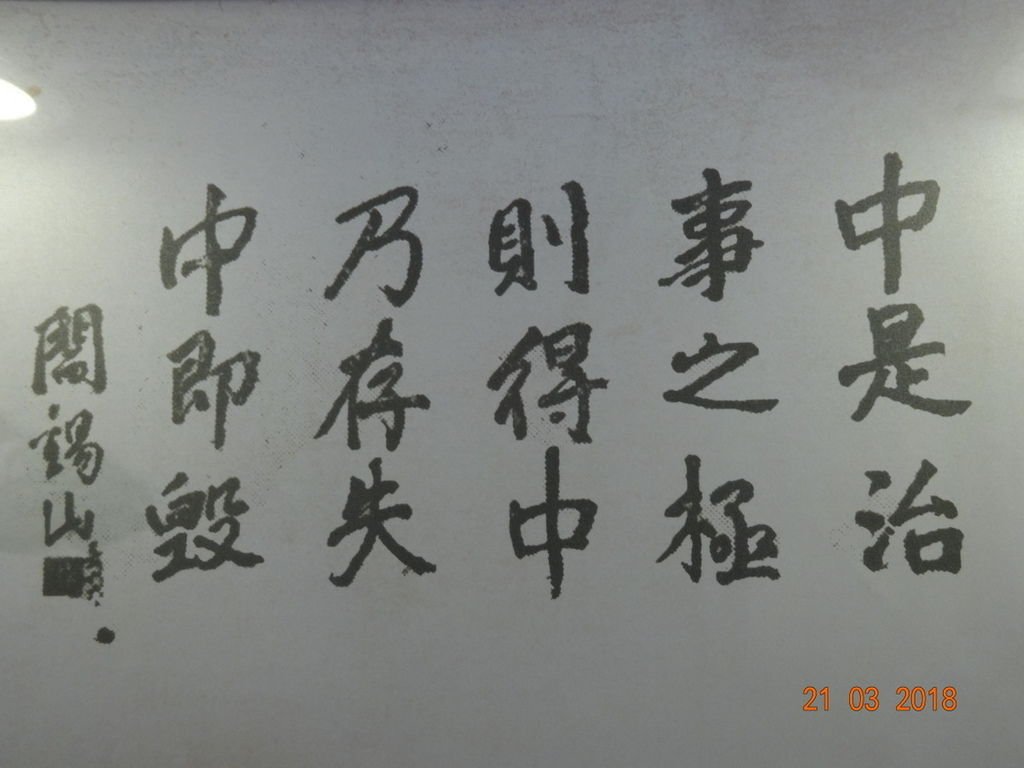 中是治
事之極
則得中
乃存失
中即毀
閻錫山
21 03 2018